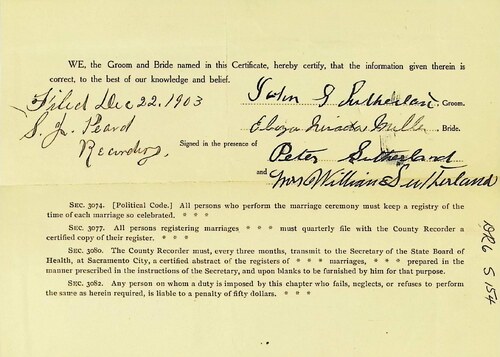 WE, the Groom and Bride named in this Certificate, hereby certify, that the information given therein is
correct, to the best of our knowledge and belief.
Filed Dec 22. 1903
John G Sutherland Groom.
S. L. Peard
Recorder,
Bride.
Signed in the presence of
Peter Sutherland
and Mrs William Sutherland
SEC. 3074. [Political Code.] All persons who perform the marriage ceremony must keep a registry of the
time of each marriage so celebrated. * * *
SEC. 3077. All persons registering marriages * * * must quarterly file with the County Recorder a
certified copy of their register. * * *
SEC. 3080. The County Recorder must, every three months, transmit to the Secretary of the State Board of
Health, at Sacramento City, a certified abstract of the registers of * * * marriages, * * * prepared in the
manner prescribed in the instructions of the Secretary, and upon blanks to be furnished by him for that purpose.
SEC. 3082. Any person on whom a duty is imposed by this chapter who fails, neglects, or refuses to perform
the same as herein required, is liable to a penalty of fifty dollars. * * *
S 154